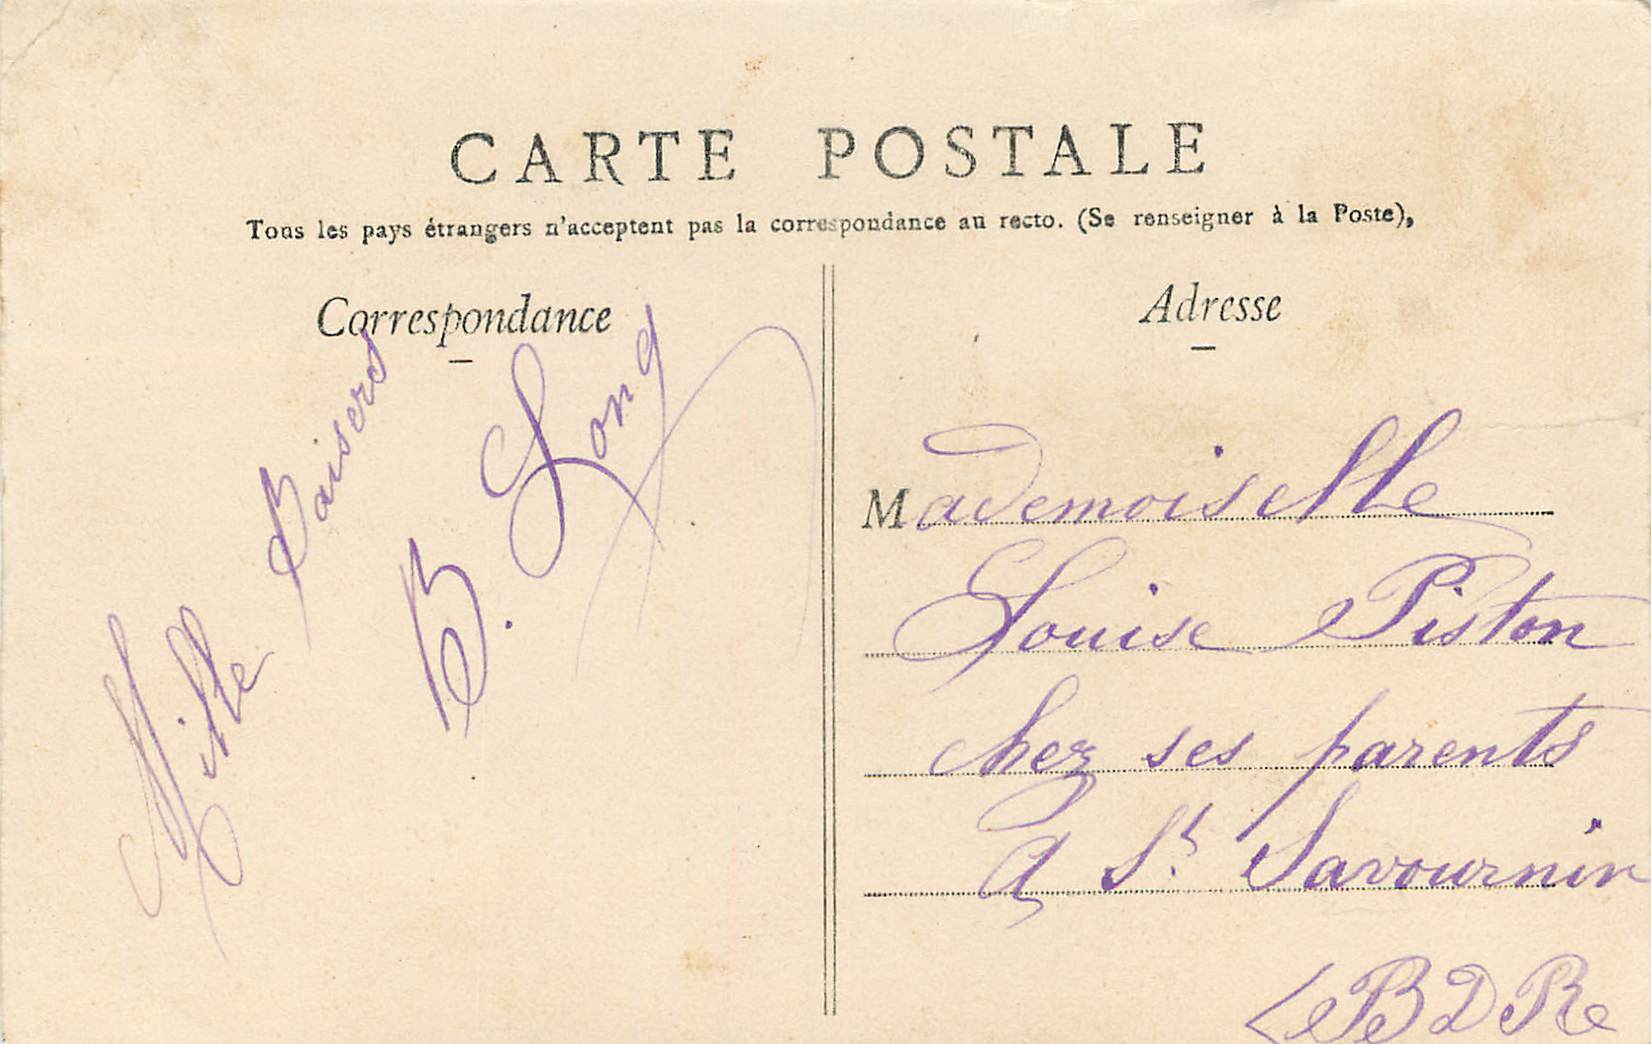 CARTE POSTALE
Tous les pays étrangers n'acceptent pas la correspondance au recto. (Se renseigner à la Poste),
Correspondance
Mille Baisers
B. Long
Adresse
Mademoiselle
Louise Piston
chez ses parents
A St. Savournin
BDR